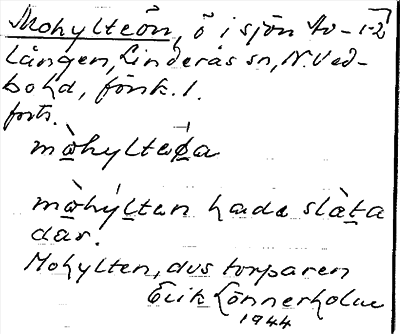 Mohylteön, ö i sjön Av- 1-2
lången, Linderås sn, N. Ved-
bohd, fönk. 1.
forts.
mòhylteøa
mòhýlten hade slàta
där.
Mohylten, dvs torparen
Erik Lönnerholm
1944